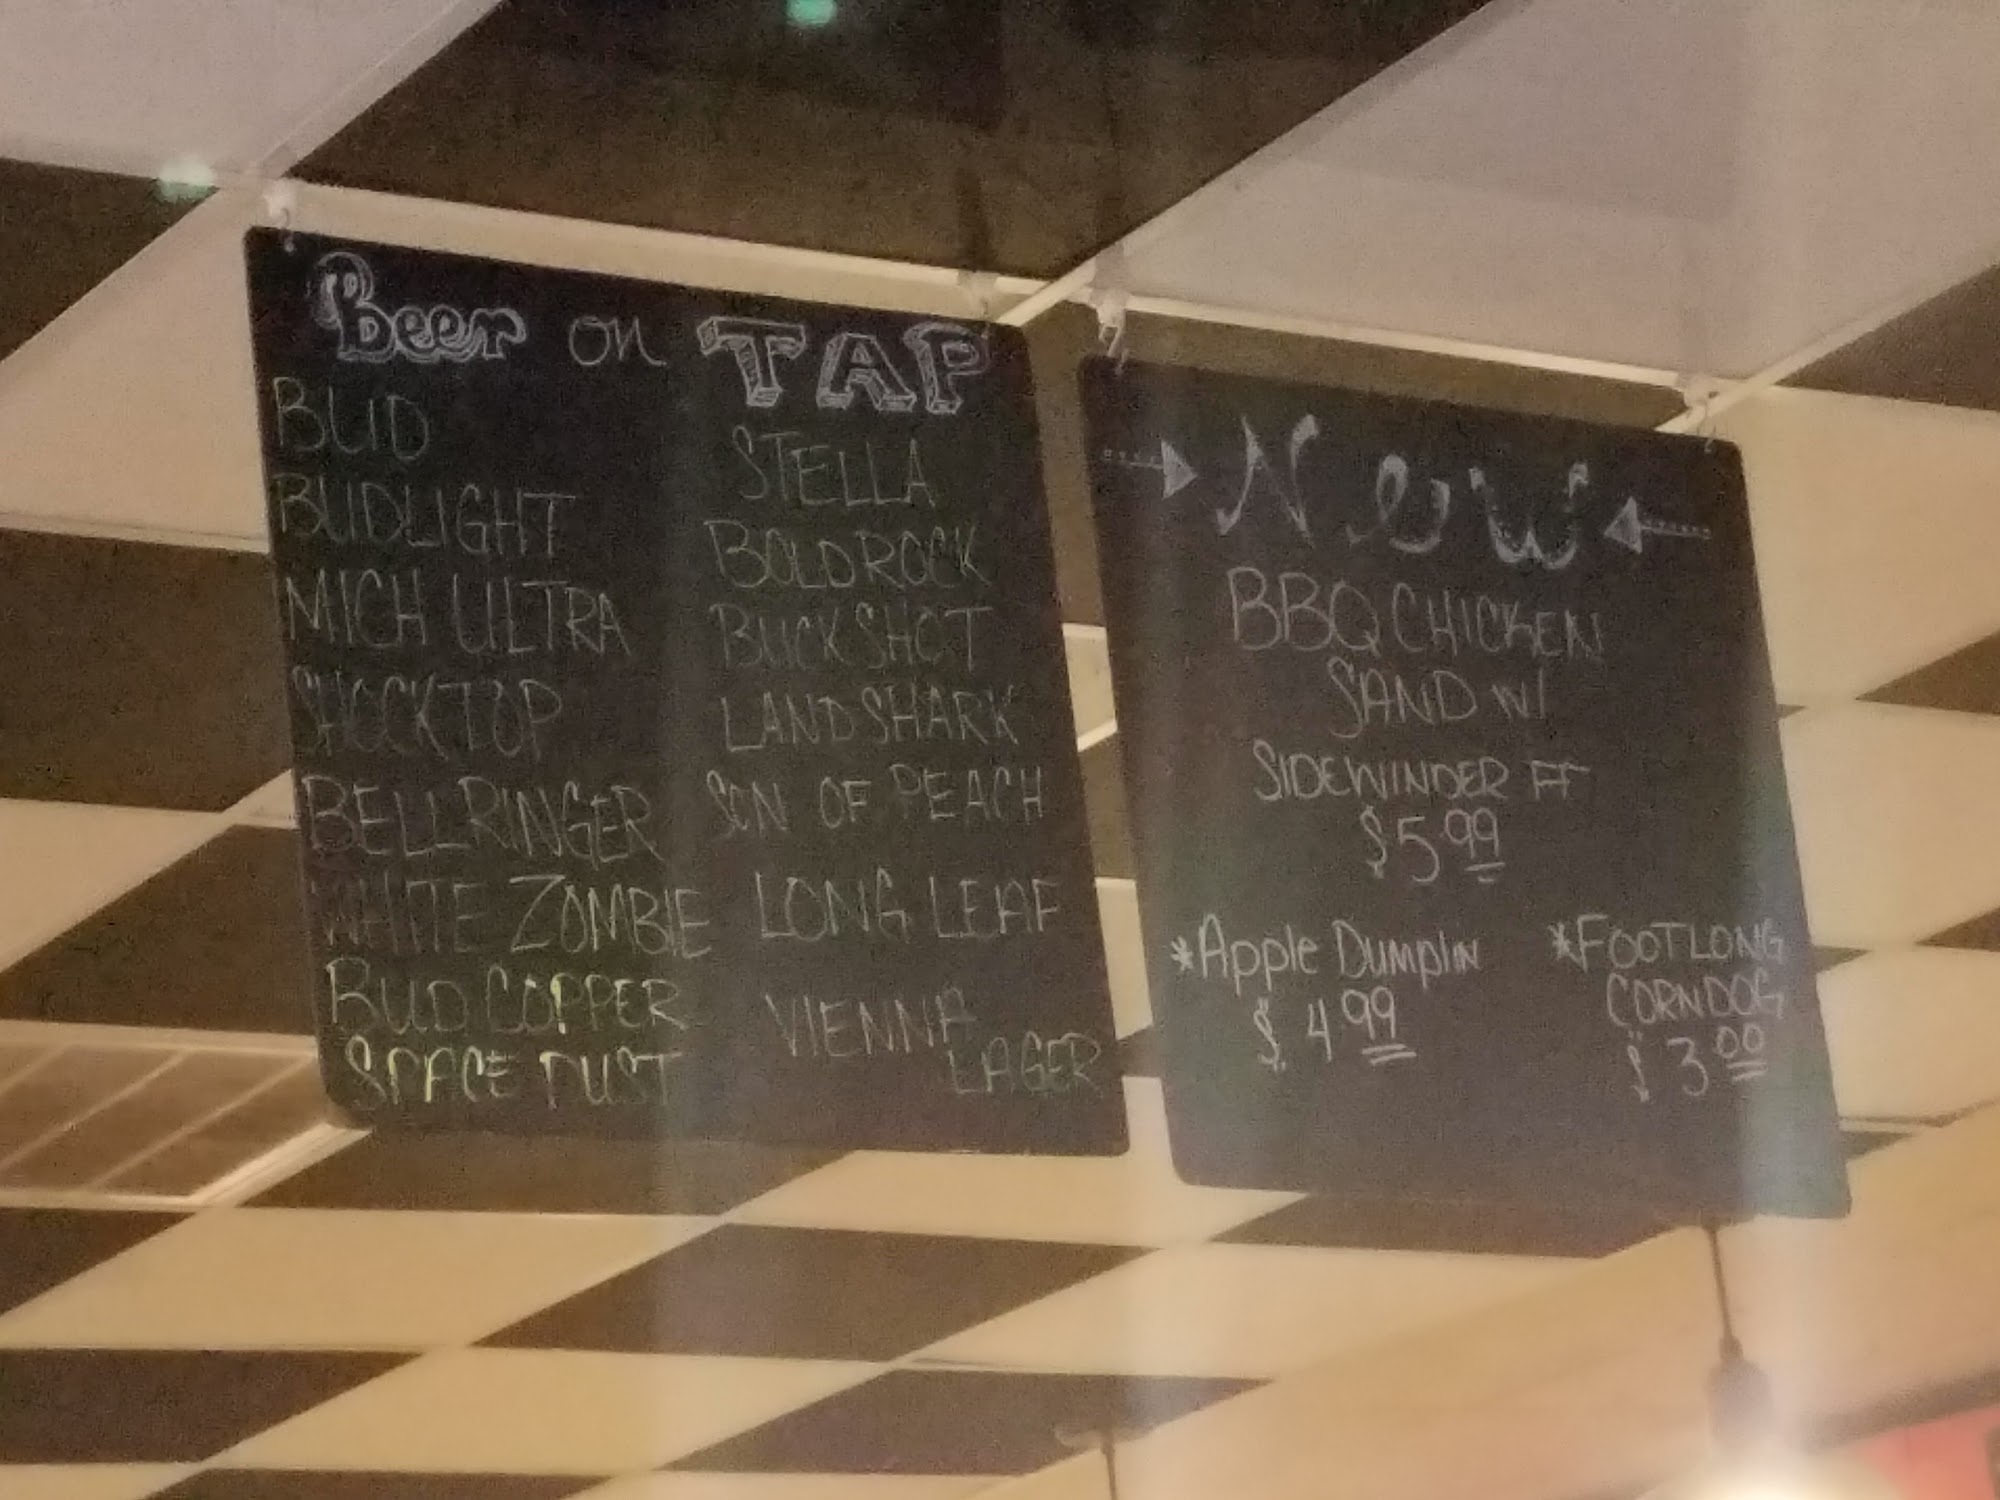 Beer on TAP
BUD
BUDLIGHT
MICH ULTRA
SHOCKTOP
BELLRINGER
WHITE ZOMBIE
BUD COPPER
SPACE DUST
STELLA
BOLDROCK
BUCKSHOT
LANDSHARK
SON OF PEACH
LONG LEAF
VIENNA
LAGER
New
BBQ CHICKEN
SAND W/
SIDEWINDER FF
$5.99
*Apple Dumplin
$4.99
*FOOTLONG
CORNDOG
$3.00